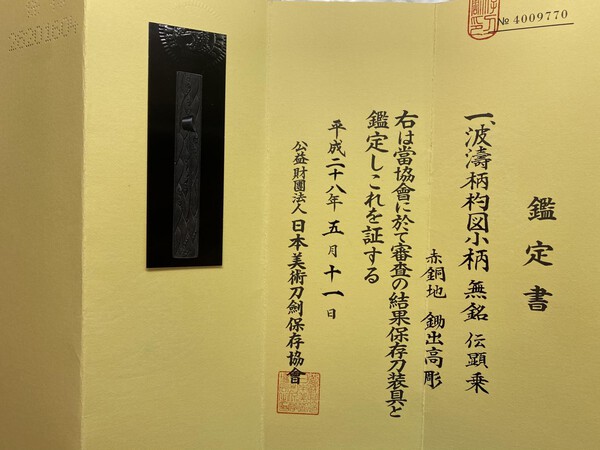 № 4009770
鑑定書
一、波濤柄杓図小柄 無銘 伝顕乗
赤銅地 鋤出高彫
右は當協會に於て審査の結果保存刀装具と
鑑定しこれを証する
平成二十八年五月十一日
公益財團法人日本美術刀劍保存協會